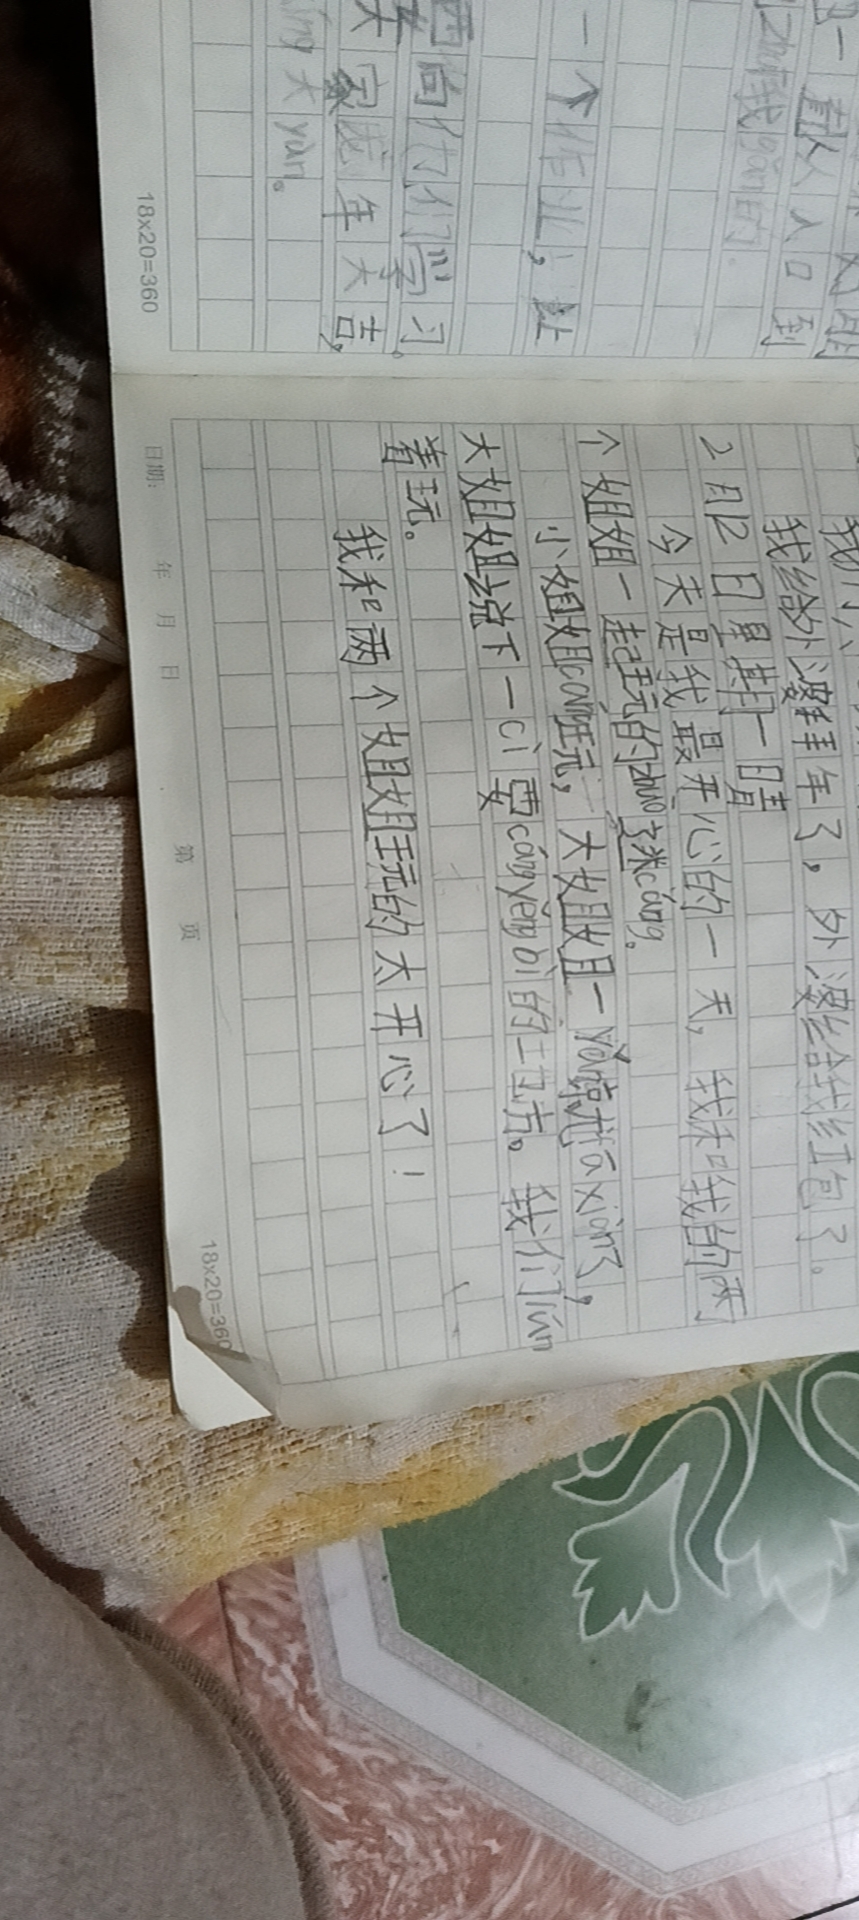 一个作业，让
向他们学习。
大家虎年大吉，
大yùn。
18x20=360
我给外婆拜年了，外婆给我红包了。
2月12日星期一晴
今天是我最开心的一天，我和我的两
个姐姐一起玩的zhuō迷cáng。
小姐姐cáng玩，大姐姐一yǎn就fā xiàn了，
大姐姐说下一cì要cángyǐnbì的地方。我们lún
着玩。
我和两个姐姐玩的太开心了！
日期： 年 月 日
第 页
18x20=360